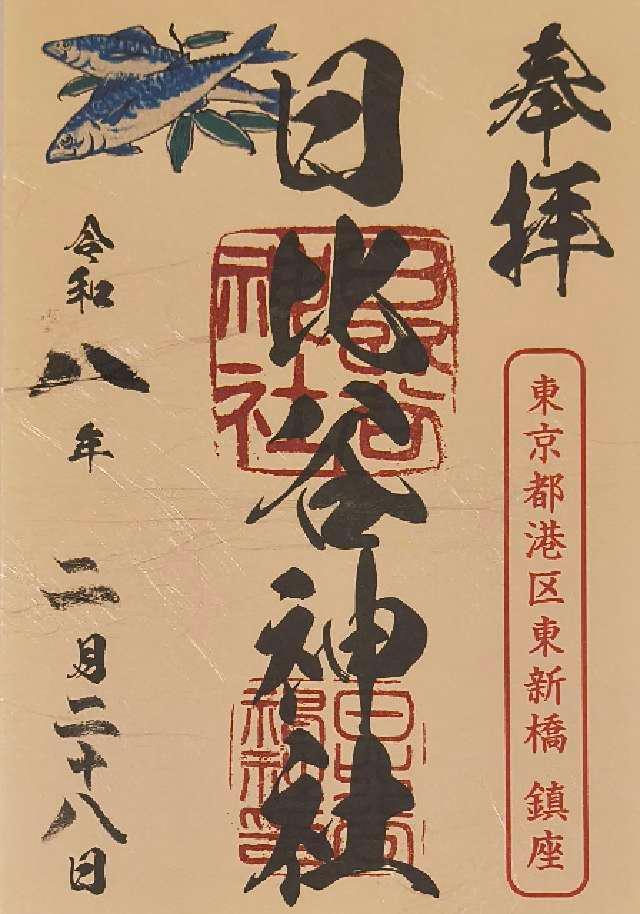 奉拝
東京都港区東新橋 鎮座
日比谷神社
日比谷神社
令和八年 二月二十八日